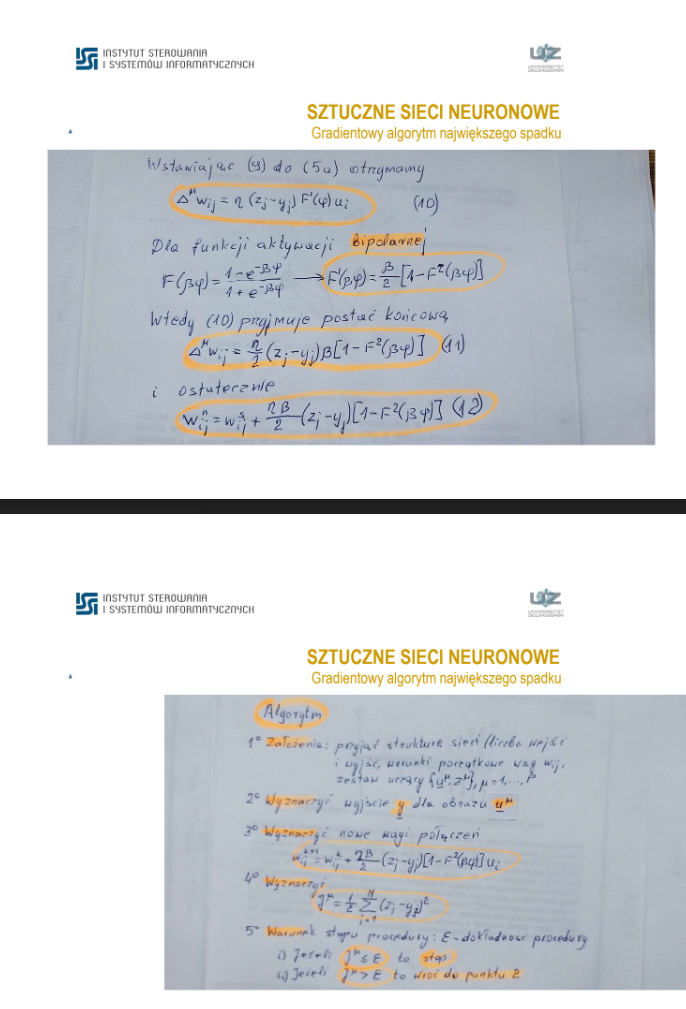 INSTYTUT STEROWANIA
I SYSTEMÓW INFORMATYCZNYCH
UZ
UNIWERSYTET
ZIELONOGÓRSKI
SZTUCZNE SIECI NEURONOWE
Gradientowy algorytm największego spadku
Wstawiając (9) do (5a) otrzymamy
Δ^μ w_ij = η (z_j - y_j) F'(φ) u_i (10)
Dla funkcji aktywacji bipolarnej
F(βφ) = (1 - e^-βφ) / (1 + e^-βφ) → F'(βφ) = β/2 [1 - F²(βφ)]
Wtedy (10) przyjmuje postać końcową
Δ^μ w_ij = η/2 (z_j - y_j) β [1 - F²(βφ)] (11)
i ostatecznie
w_ij^n = w_ij^s + ηβ/2 (z_j - y_j) [1 - F²(βφ)] (12)
INSTYTUT STEROWANIA
I SYSTEMÓW INFORMATYCZNYCH
UZ
UNIWERSYTET
ZIELONOGÓRSKI
SZTUCZNE SIECI NEURONOWE
Gradientowy algorytm największego spadku
Algorytm
1° Założenia: przyjąć strukturę sieci (liczba wejść
i wyjść, warunki początkowe wag w_ij,
zestaw uczący {u^μ, z^μ}, μ = 1, ..., P
2° Wyznaczyć wyjście y dla obrazu u^μ
3° Wyznaczyć nowe wagi połączeń
w_ij^k+1 = w_ij^k + ηβ/2 (z_j - y_j) [1 - F²(βφ)] u_i
4° Wyznaczyć
J^μ = 1/2 Σ_{j=1}^N (z_j - y_j)²
5° Warunek stopu procedury: ε - dokładność procedury
i) Jeżeli J^μ ≤ ε to stop
ii) Jeżeli J^μ > ε to wróć do punktu 2